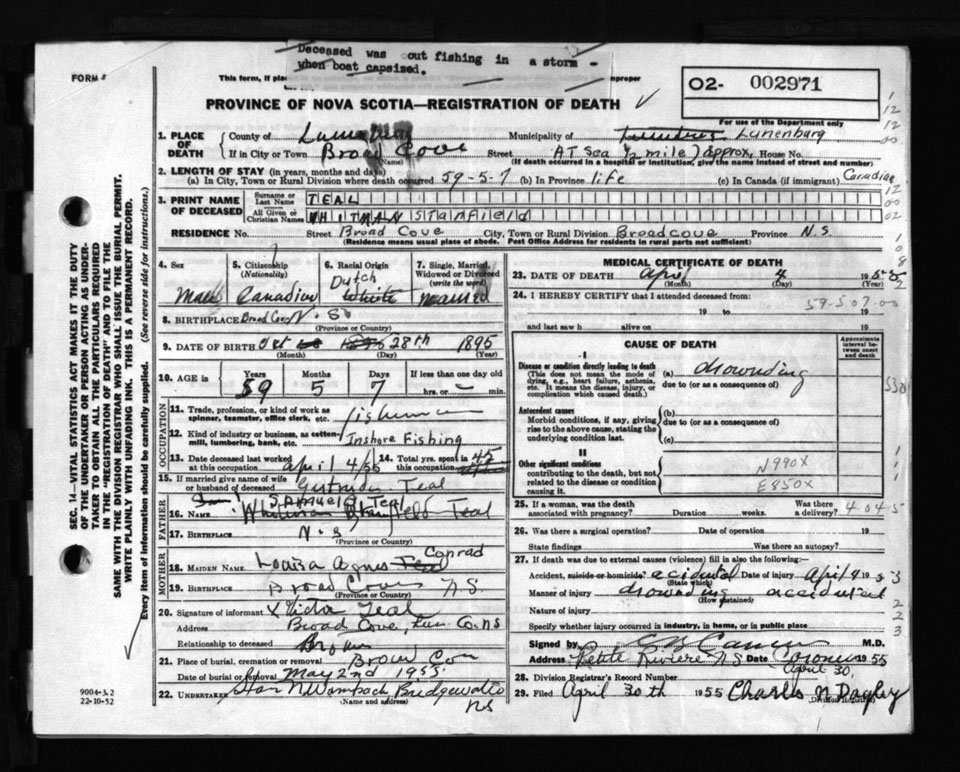 Deceased was out fishing in a storm -
when boat capsized.
FORM
This form, if plac improper
PROVINCE OF NOVA SCOTIA—REGISTRATION OF DEATH
O2- 002971
For use of the Department only
1. PLACE OF DEATH County of Municipality of Lunenburg
If in City or Town Broad Cove (Name) Street AT Sea (½ mile) approx. House No.
(If death occurred in a hospital or institution, give the name instead of street and number)
2. LENGTH OF STAY (in years, months and days)
(a) In City, Town or Rural Division where death occurred 59-5-7 (b) In Province life (c) In Canada (if immigrant) Canadian
3. PRINT NAME OF DECEASED Surname or Last Name TEAL
All Given or Christian Names WHITMAN STANFIELD
RESIDENCE No. Street Broad Cove City, Town or Rural Division Broad cove Province N.S.
(Residence means usual place of abode. Post Office Address for residents in rural parts not sufficient)
4. Sex Male
5. Citizenship (Nationality) Canadian
6. Racial Origin Dutch White
7. Single, Married, Widowed or Divorced (write the word) married
8. BIRTHPLACE Broad Cove N.S.
(Province or Country)
9. DATE OF BIRTH Oct 28th 1895
(Month) (Day) (Year)
10. AGE in Years 59 Months 5 Days 7 If less than one day old hrs. or min.
OCCUPATION
11. Trade, profession, or kind of work as spinner, teamster, office clerk, etc. fisherman
12. Kind of industry or business, as cotten-mill, lumbering, bank, etc. Inshore Fishing
13. Date deceased last worked at this occupation April 4/55
14. Total yrs. spent in this occupation 45
15. If married give name of wife or husband of deceased Gertrude Teal
FATHER
16. NAME Samuel Teal
17. BIRTHPLACE N.S
(Province or Country)
MOTHER
18. MAIDEN NAME Louisa Agnes Teal Conrad
19. BIRTHPLACE Broad Cove N.S.
(Province or Country)
20. Signature of informant x Victor Teal
Address Broad Cove, Lun Co. NS
Relationship to deceased
21. Place of burial, cremation or removal Broad Cove
Date of burial or removal May 2nd 1955
22. UNDERTAKER Bridgewater NS
(Name and address)
MEDICAL CERTIFICATE OF DEATH
23. DATE OF DEATH April 4 1955
(Month) (Day)
24. I HEREBY CERTIFY that I attended deceased from:
19 to 19
and last saw h alive on 19
59-507.00
CAUSE OF DEATH
Approximate interval between onset and death
I
Disease or condition directly leading to death (a) drowning
(This does not mean the mode of dying, e.g., heart failure, asthenia, etc. It means the disease, injury, or complication which caused death.)
due to (or as a consequence of)
Antecedent causes (b)
Morbid conditions, if any, giving rise to the above cause, stating the underlying condition last.
due to (or as a consequence of)
(c)
II
Other significant conditions
contributing to the death, but not related to the disease or condition causing it.
N990X
E850X
25. If a woman, was the death associated with pregnancy? Duration weeks. Was there a delivery?
404-5
26. Was there a surgical operation? Date of operation 19
State findings Was there an autopsy?
27. If death was due to external causes (violence) fill in also the following:—
Accident, suicide or homicide? accidental Date of injury April 4 1955
(State which)
Manner of injury drowning accidental
(How sustained)
Nature of injury
Specify whether injury occurred in industry, in home, or in public place
Signed by M.D.
Address Petite Riviere NS Date 1955
April 30.
28. Division Registrar's Record Number
29. Filed April 30th 1955 Charles N Dagley
Division Registrar
SEC. 14—VITAL STATISTICS ACT MAKES IT THE DUTY
OF THE UNDERTAKER OR PERSON ACTING AS UNDERTAKER TO OBTAIN ALL THE PARTICULARS REQUIRED
IN THE "REGISTRATION OF DEATH" AND TO FILE THE
SAME WITH THE DIVISION REGISTRAR WHO SHALL ISSUE THE BURIAL PERMIT.
WRITE PLAINLY WITH UNFADING INK. THIS IS A PERMANENT RECORD.
Every item of information should be carefully supplied. (See reverse side for instructions.)
9004-3.2
22-10-52